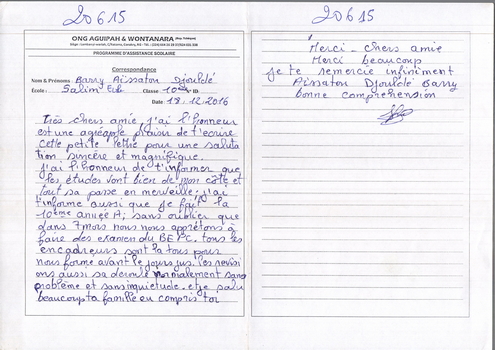 20615
ONG AGUIPAH & WONTANARA
PROGRAMME D'ASSISTANCE SCOLAIRE
Correspondance
Nom & Prénoms : Barry Aïssatou Djouldé
École : Salim Classe 10ème ID
Date : 18.12.2016
Très chers amie j'ai l'honneur
est une agréable plaisir de t'ecrire
cette petite lettre pour une saluta
tion sincère et magnifique.
j'ai l'honneur de t'informer que
les études vont bien de mon côté et
tout sa passe en merveille, j'ai
t'informe aussi que je fait la
10ème année A; sans oublier que
dans 7 mois nous nous apprétons à
faire des examen du BEPC. tous les
encadreurs sont la tous pour
nous formé avant le jours jus. les revisi
ons aussi sa deroule normalement sans
problème et sans inquietude. et je salu
beaucoup ta famille en compris toi
20615
Merci - chers amie
Merci beaucoup
je te remercie infiniment
Aissatou Djouldé Barry
bonne comprehension